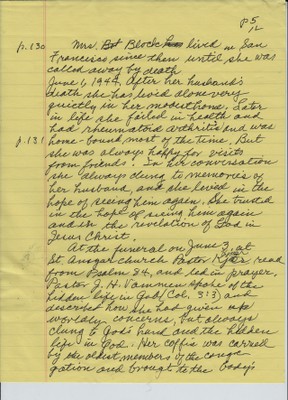 p 5
12
p. 130 Mrs. Block lived in San
Francisco since then until she was
called away by death
June 1, 1944. After her husband's
death she has lived alone very
quietly in her modest home. Later
in life she failed in health and
had rheumatoid arthritis and was
p. 131 home-bound most of the time. But
she was always happy for visits
from friends. In her conversation
she always clung to memories of
her husband, and she lived in the
hope of seeing him again. She trusted
in the hope of seeing him again
and in the revelation of God in
Jesus Christ.
At the funeral on June 3, at
St. Ansgar church Pastor read
from Psalm 84, and led in prayer.
Pastor J. H. Vammen spoke of the
hidden life in God (Col. 3:3) and
described how she had given up
worldly concerns, but always
clung to God's hand and the hidden
life in God. Her coffin was carried
by the oldest members of the congre
gation and brought to the